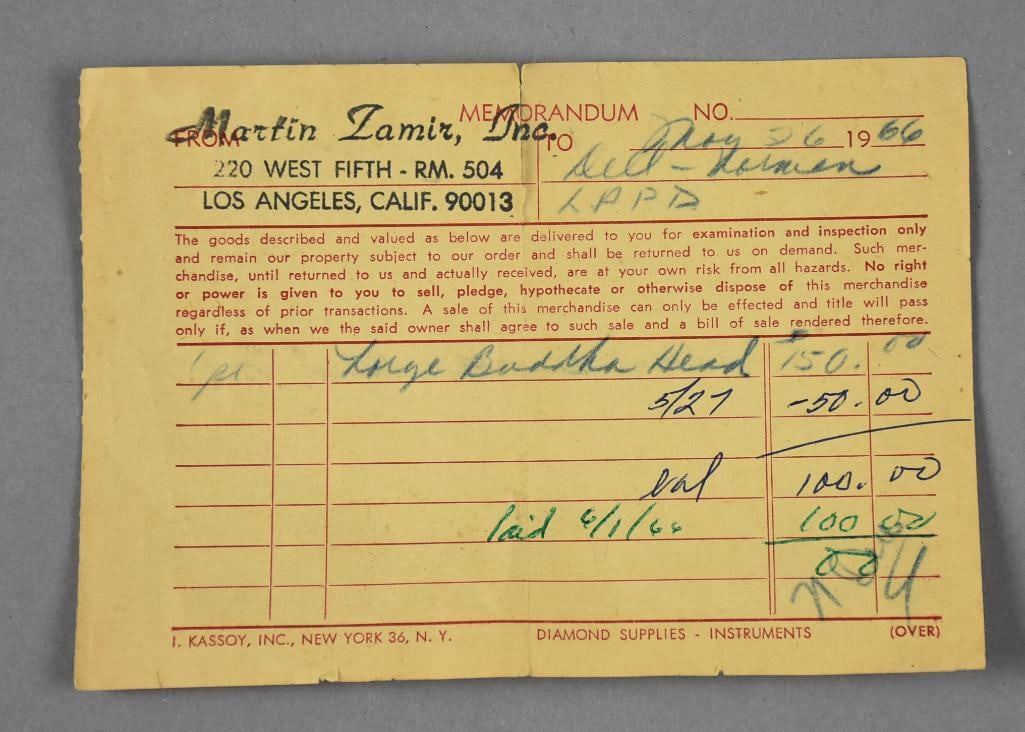 MEMORANDUM NO.
FROM Martin Zamir, Inc.
TO May 26 1966
220 WEST FIFTH - RM. 504
Dell - Norman
LOS ANGELES, CALIF. 90013
L A P D
The goods described and valued as below are delivered to you for examination and inspection only
and remain our property subject to our order and shall be returned to us on demand. Such mer-
chandise, until returned to us and actually received, are at your own risk from all hazards. No right
or power is given to you to sell, pledge, hypothecate or otherwise dispose of this merchandise
regardless of prior transactions. A sale of this merchandise can only be effected and title will pass
only if, as when we the said owner shall agree to such sale and a bill of sale rendered therefore.
Large Buddha Head $150.00
5/27 -50.00
bal 100.00
Paid 6/1/66 100 00
00
I. KASSOY, INC., NEW YORK 36, N. Y. DIAMOND SUPPLIES - INSTRUMENTS (OVER)